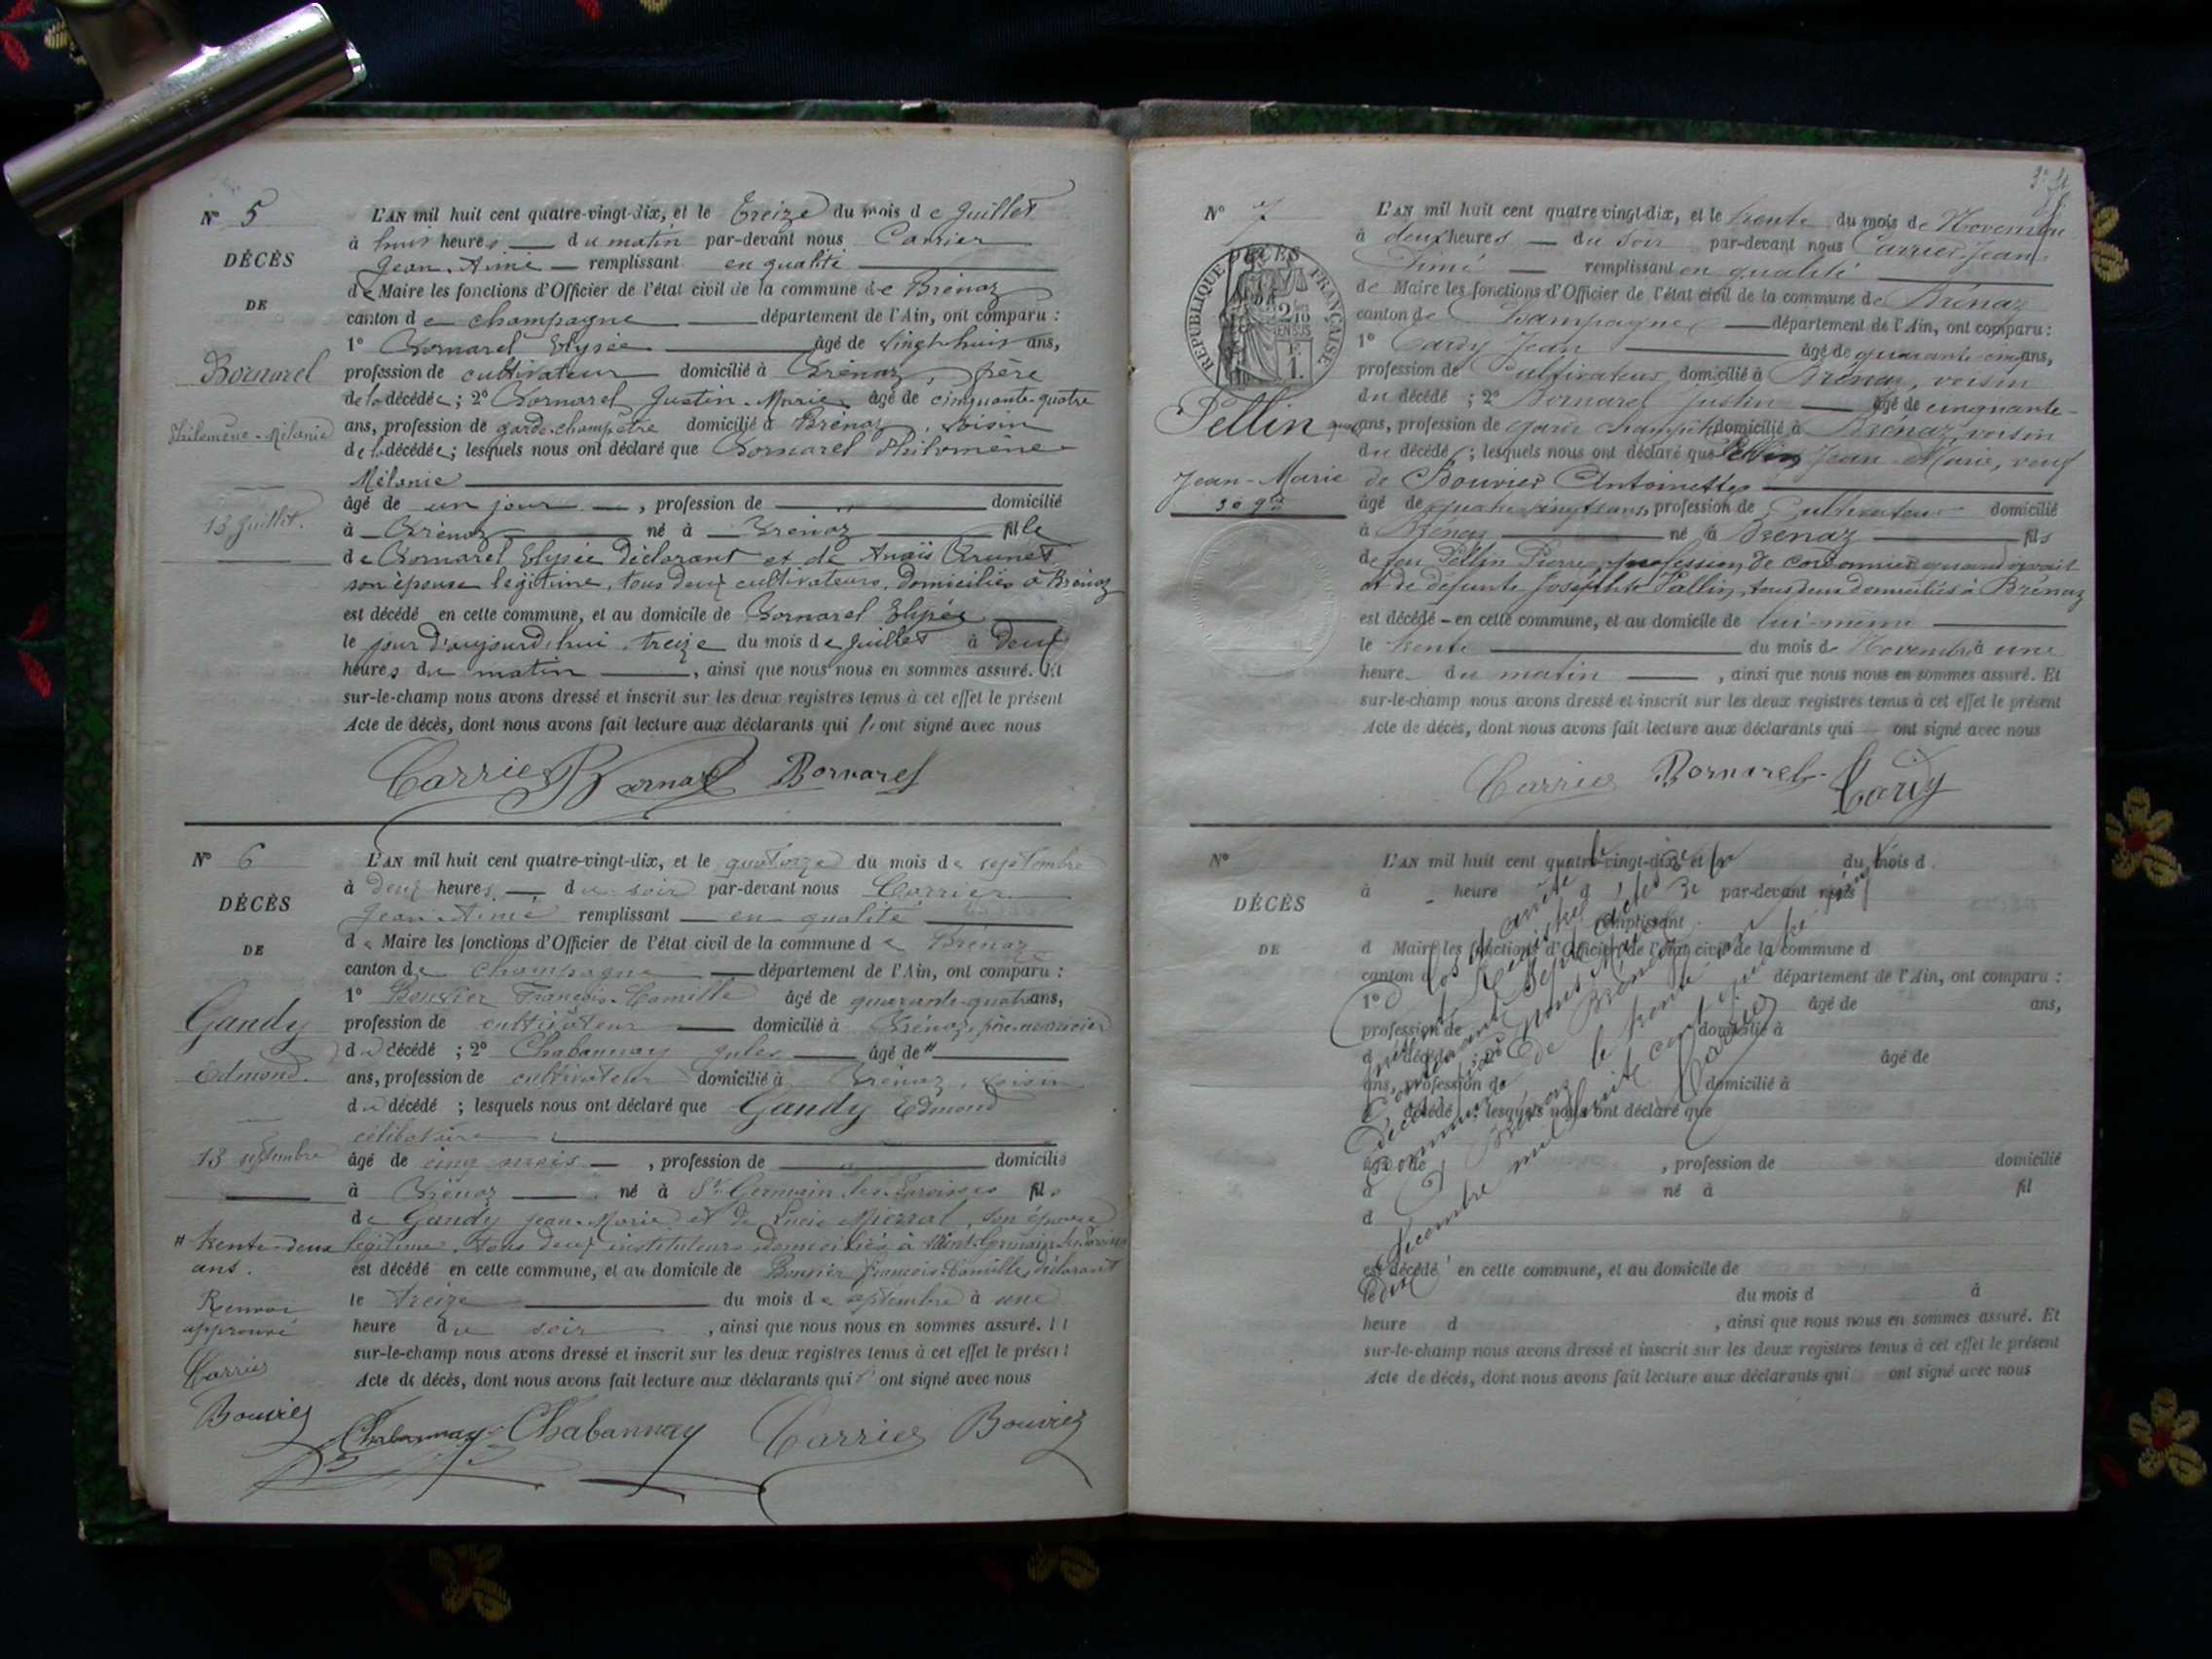 N° 5
DÉCÈS
DE
Bornarel
Philomène-Mélanie
13 Juillet.
L'AN mil huit cent quatre-vingt-dix, et le treize du mois de Juillet
à huit heures du matin par-devant nous Carrier
Jean-Aimé remplissant en qualité
de Maire les fonctions d'Officier de l'état civil de la commune de Brénaz
canton de Champagne département de l'Ain, ont comparu :
1° Bornarel Elysée âgé de vingt-huit ans,
profession de cultivateur domicilié à Brénaz, père
de la décédée ; 2° Bornarel Justin-Marie, âgé de cinquante-quatre
ans, profession de garde-champêtre domicilié à Brénaz, voisin
de la décédée ; lesquels nous ont déclaré que Bornarel Philomène
Mélanie
âgé de un jour , profession de domicilié
à Brénaz né à Brénaz fille
de Bornarel Elysée déclarant et de Anaïs Brunet
son épouse légitime, tous deux cultivateurs, domiciliés à Brénaz
est décédé en cette commune, et au domicile de Bornarel Elysée
le jour d'aujourd'hui, treize du mois de Juillet à deux
heures du matin , ainsi que nous nous en sommes assuré. Et
sur-le-champ nous avons dressé et inscrit sur les deux registres tenus à cet effet le présent
Acte de décès, dont nous avons fait lecture aux déclarants qui ont signé avec nous
Carrier Bornarel Bornarel
N° 6
DÉCÈS
DE
Gandy
Edmond.
13 septembre
# trente-deux
ans.
Renvoi
approuvé
Carrier
Bouvier
L'AN mil huit cent quatre-vingt-dix, et le quatorze du mois de septembre
à deux heures du soir par-devant nous Carrier
Jean-Aimé remplissant en qualité
de Maire les fonctions d'Officier de l'état civil de la commune de Brénaz
canton de Champagne département de l'Ain, ont comparu :
1° Bouvier François-Camille âgé de quarante-quatre ans,
profession de cultivateur domicilié à Brénaz, père nourricier
du décédé ; 2° Chabannay Jules âgé de #
ans, profession de cultivateur domicilié à Brénaz, voisin
du décédé ; lesquels nous ont déclaré que Gandy Edmond
célibataire
âgé de cinq mois , profession de domicilié
à Brénaz né à St Germain-les-Paroisses fils
de Gandy Jean-Marie et de Lucie son épouse
légitime, tous deux instituteurs domiciliés à Saint-Germain-les-Paroisses
est décédé en cette commune, et au domicile de Bouvier François-Camille, déclarant
le treize du mois de septembre à une
heure du soir , ainsi que nous nous en sommes assuré. Et
sur-le-champ nous avons dressé et inscrit sur les deux registres tenus à cet effet le présent
Acte de décès, dont nous avons fait lecture aux déclarants qui ont signé avec nous
Chabannay Chabannay Carrier Bouvier
N° 7
DÉCÈS
RÉPUBLIQUE FRANÇAISE
2/10 EN SUS
F. 1.
Pellin
Jean-Marie
30 9bre
L'AN mil huit cent quatre-vingt-dix, et le trente du mois de Novembre
à deux heures du soir par-devant nous Carrier Jean
Aimé remplissant en qualité
de Maire les fonctions d'Officier de l'état civil de la commune de Brénaz
canton de Champagne département de l'Ain, ont comparu :
1° Cardy Jean âgé de quarante-cinq ans,
profession de Cultivateur domicilié à Brénaz, voisin
du décédé ; 2° Bornarel Justin âgé de cinquante-
quatre ans, profession de garde champêtre domicilié à Brénaz, voisin
du décédé ; lesquels nous ont déclaré que Pellin Jean-Marie, veuf
de Bouvier Antoinette
âgé de quatre-vingts ans, profession de Cultivateur domicilié
à Brénaz né à Brénaz fils
de feu Pellin Pierre, profession de cordonnier quand vivait
et de défunte Josephte Pallin, tous deux domiciliés à Brénaz
est décédé en cette commune, et au domicile de lui-même
le trente du mois de Novembre à une
heure du matin , ainsi que nous nous en sommes assuré. Et
sur-le-champ nous avons dressé et inscrit sur les deux registres tenus à cet effet le présent
Acte de décès, dont nous avons fait lecture aux déclarants qui ont signé avec nous
Carrier Bornarel Cardy
N°
DÉCÈS
DE
L'AN mil huit cent quatre-vingt-dix, et le du mois d
à heure d par-devant nous
remplissant
d Maire les fonctions d'Officier de l'état civil de la commune d
canton d département de l'Ain, ont comparu :
1° âgé de ans,
profession de domicilié à
d décédé ; 2° âgé de
ans, profession de domicilié à
d décédé ; lesquels nous ont déclaré que
âgé de , profession de domicilié
à né à fil
d
est décédé en cette commune, et au domicile de
le du mois d à
heure d , ainsi que nous nous en sommes assuré. Et
sur-le-champ nous avons dressé et inscrit sur les deux registres tenus à cet effet le présent
Acte de décès, dont nous avons fait lecture aux déclarants qui ont signé avec nous
Clos et arrêté le
présent Registre
contenant sept actes de
décès par nous Maire de la
commune de Brénaz
à Brénaz le trente un
décembre mil huit cent quatre vingt
dix
Carrier